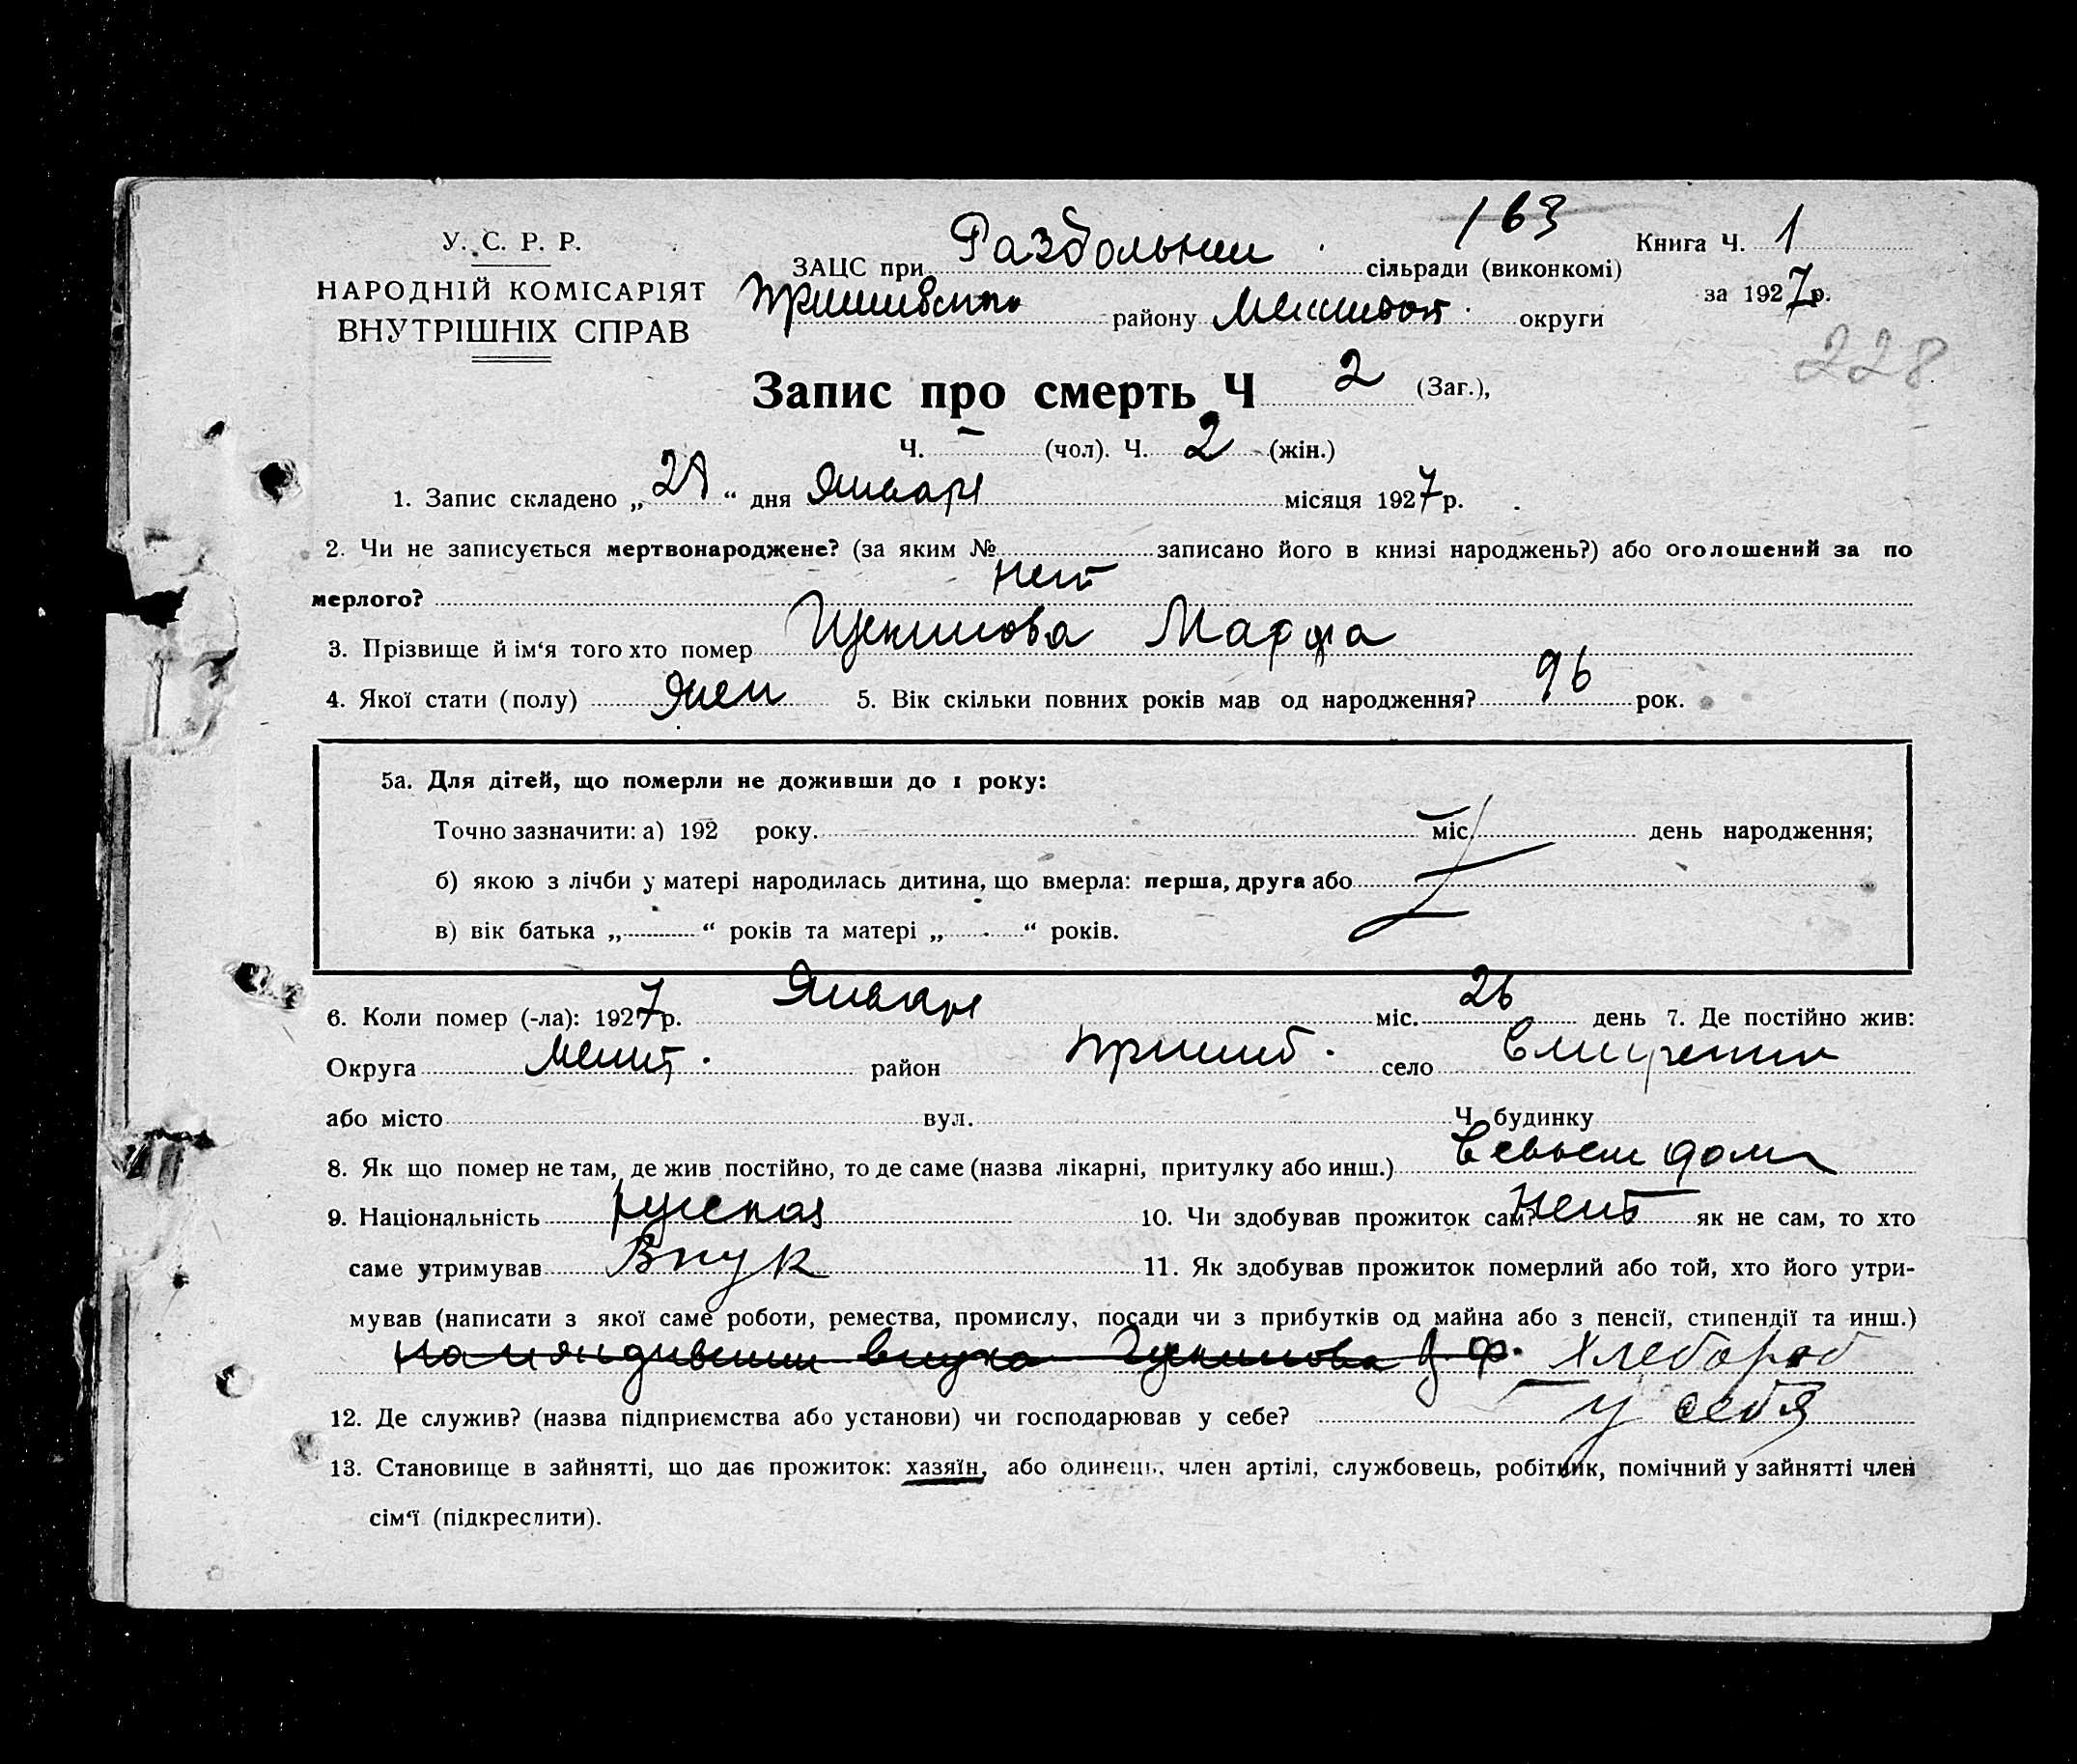 163
У. С. Р. Р.
НАРОДНІЙ КОМІСАРІЯТ
ВНУТРІШНІХ СПРАВ
ЗАЦС при Раздольнем сільради (виконкомі)
району округи
Книга Ч. 1
за 1927 р.
228
Запис про смерть Ч 2 (Заг.),
Ч. — (чол). Ч. 2 (жін.)
1. Запис складено „ “ дня Января місяця 1927 р.
2. Чи не записується мертвонароджене? (за яким № записано його в книзі народжень?) або оголошений за по
мерлого? нет
3. Прізвище й ім‘я того хто помер Марфа
4. Якої стати (полу) жен 5. Вік скільки повних років мав од народження? 96 рок.
5а. Для дітей, що померли не доживши до 1 року:
Точно зазначити: а) 192 року. міс. день народження;
б) якою з лічби у матері народилась дитина, що вмерла: перша, друга або
в) вік батька „ “ років та матері „ “ років.
6. Коли помер (-ла): 1927 р. Января міс. 26 день 7. Де постійно жив:
Округа Мелит. район Пришиб. село
або місто вул. Ч. будинку
8. Як що помер не там, де жив постійно, то де саме (назва лікарні, притулку або инш.) в своем доми
9. Національність русская 10. Чи здобував прожиток сам? нет як не сам, то хто
саме утримував Внук 11. Як здобував прожиток померлий або той, хто його утри-
мував (написати з якої саме роботи, ремества, промислу, посади чи з прибутків од майна або з пенсії, стипендії та инш.)
на иждивении внука Хлебороб
12. Де служив? (назва підприємства або установи) чи господарював у себе? у себя
13. Становище в зайнятті, що дає прожиток: хазяїн, або одинець, член артілі, службовець, робітник, помічний у зайнятті член
сім‘ї (підкреслити).